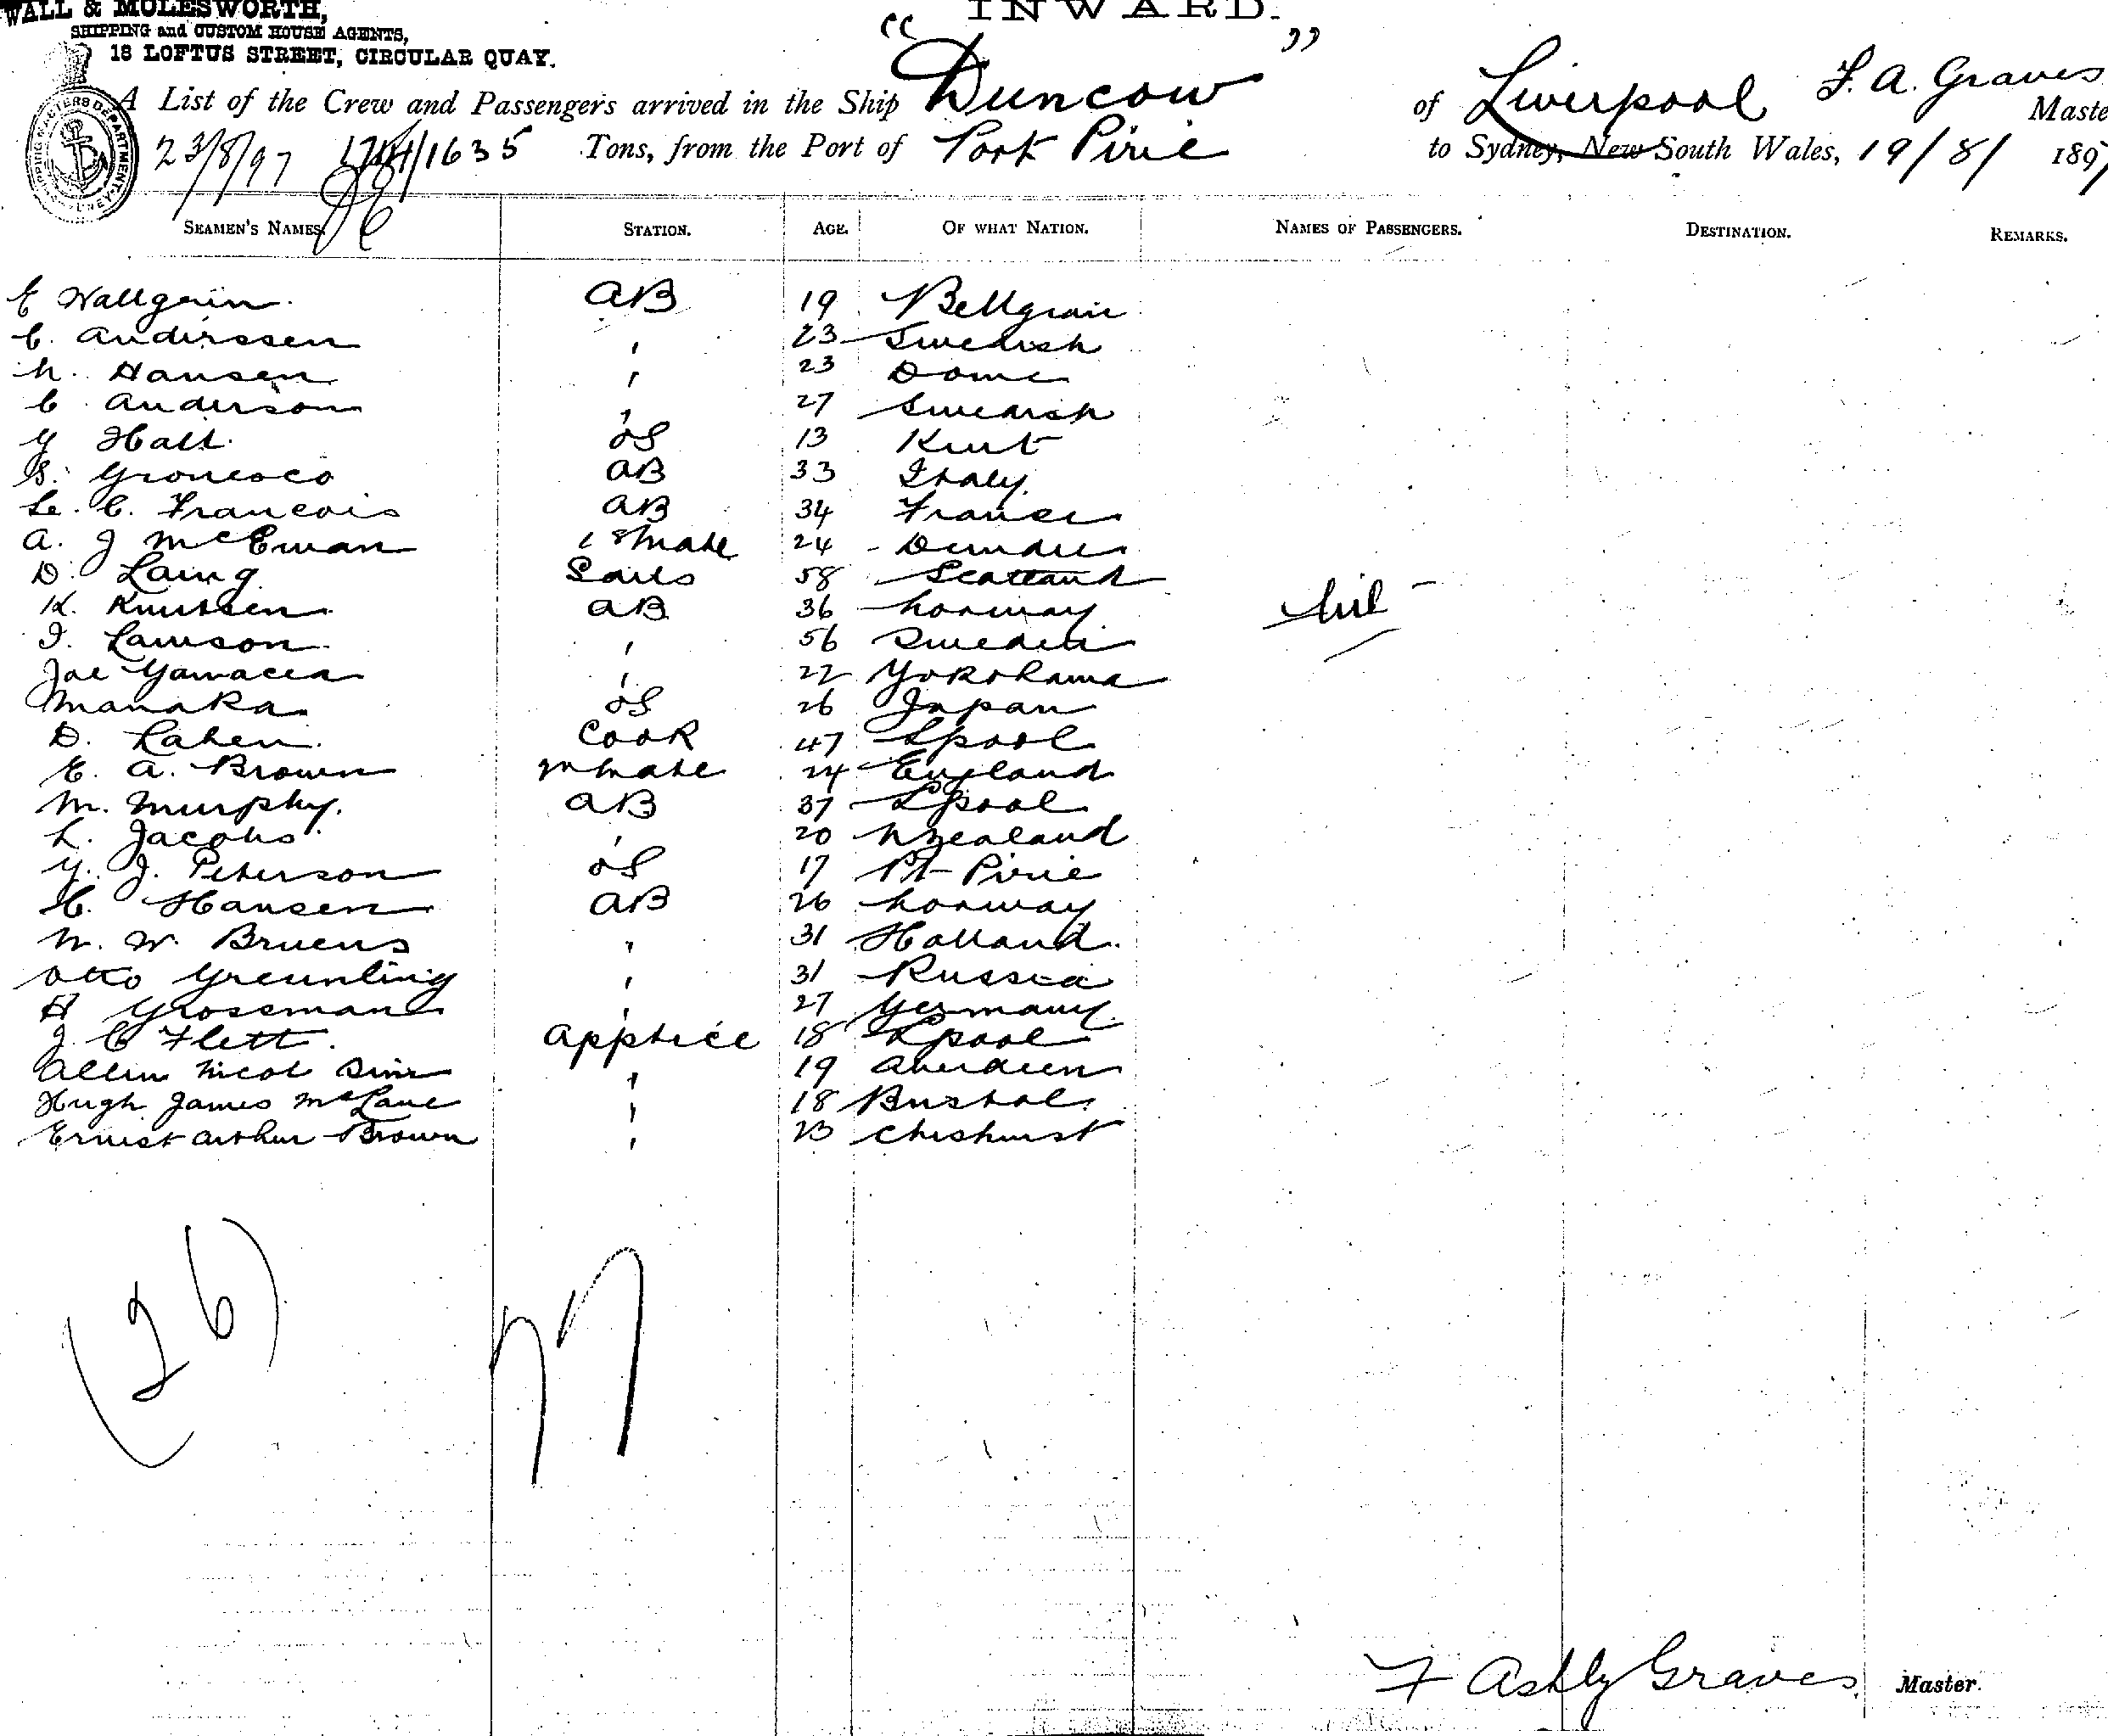 WALL & MOLESWORTH,
SHIPPING and CUSTOM HOUSE AGENTS,
18 LOFTUS STREET, CIRCULAR QUAY.
INWARD.
A List of the Crew and Passengers arrived in the Ship "Duncow" of Liverpool F. A. Graves Maste
23/8/97 /1635 Tons, from the Port of Port Pirie to Sydney, New South Wales, 19/8/ 1897
SEAMEN'S NAMES. STATION. AGE. OF WHAT NATION. NAMES OF PASSENGERS. DESTINATION. REMARKS.
E Wallgrin AB 19
C. Anderssen " 23 Swedish
N. Hansen " 23
C Anderson " 27 Swedish
G Hall OS 13 Kent
AB 33 Italy
Le. C. Francois AB 34 France
A. J McEwan 1st Mate 24 Dundee
D. Laing Sails 58 Scotland
K. Knutsen AB 36 Norway
Nil
J. Lawson " 56 Sweden
Joe " 22 Yokohama
Manaka OS 26 Japan
D. Cook 47 Lpool
E. A. Brown Mate 24 England
M. Murphy. AB 37 Lpool
L. Jacobs " 20 N Zealand
G. J. Peterson OS 17 Pt Pirie
C. Hansen AB 26 Norway
W. W. Bruens " 31 Holland
Otto Greunling " 31 Russia
A Grossman " 27 Germany
J. C Flett. Apptice 18 Lpool
Allen Nicol " 19 Aberdeen
Hugh James McLane " 18 Bristol
Ernest Arthur Brown " 23 Chishurst
(26)
F Ashly Graves Master.